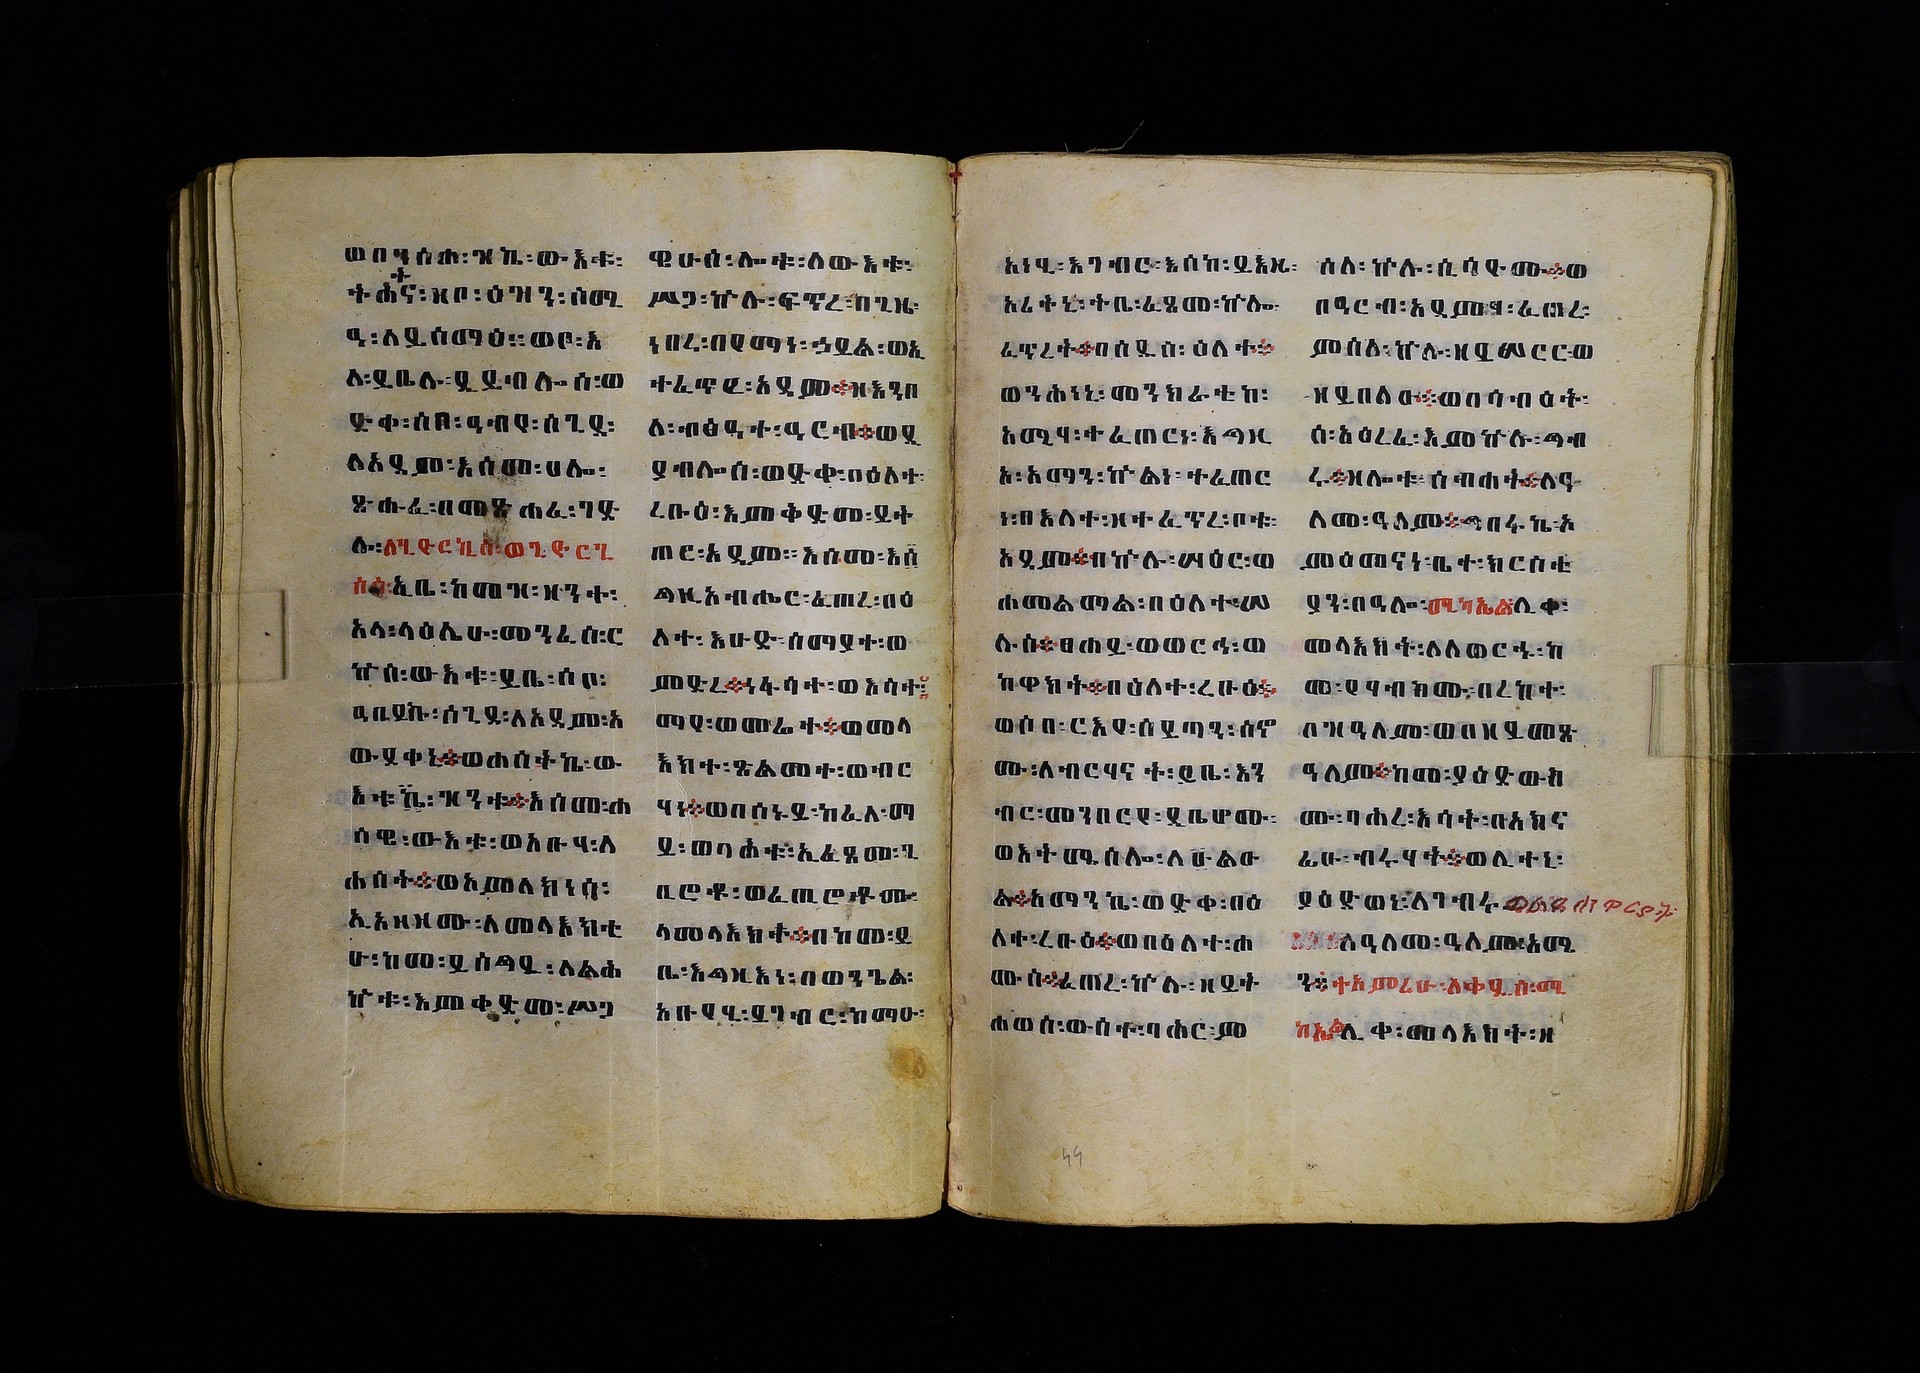 ወበጓሰሐ፡ዝኬ፡ውእቱ፡
ትሕና፡ዘቦ፡ዕዝን፡ሰሚ
ዓ፡ለይሰማዕ፡፡ወቦ፡እ
ለ፡ይቤሉ፡ዲያብሎስ፡ወ
ድቀ፡ሶበ፡ዓብየ፡ሰጊደ፡
ለአዳም፡እስመ፡ሀሎ፡
ጽሑፈ፡በመጽሐፈ፡ገድ
ሉ፡ለጊዮርጊስ፡ወጊዮርጊ
ስሰ፡ኢቤ፡ከመዝ፡ዘንተ፡
አላ፡ላዕሌሁ፡መንፈስ፡ር
ኩስ፡ውእቱ፡ይቤ፡ሶበ፡
ዓቢይኩ፡ሰጊደ፡ለአዳም፡አ
ውደቀኒ፡ወሐሰትኬ፡ው
እቱኬ፡ዝንቱ፡እስመ፡ሐ
ሳዊ፡ውእቱ፡ወአቡሃ፡ለ
ሐሰት፡ወአምላክነሰ፡
ኢአዘዞሙ፡ለመላእክቲ
ሁ፡ከመ፡ይስግዱ፡ለልሕ
ኵቱ፡እምቀዳሚ፡ሥጋ
ዊሁሰ፡ሎቱ፡ለውእቱ፡
ሥጋ፡ኵሉ፡ፍጥረ፡በጊዜ፡
ነበረ፡በየማነ፡ኃይል፡ወኢ
ተፈጥረ፡አዳም፡ዘእንበ
ለ፡ብዕለተ፡ዓርብ፡ወዲ
ያብሎስ፡ወድቀ፡በዕለተ፡
ረቡዕ፡እምቅድመ፡ይት
ጠር፡አዳም፡፡እስመ፡እስ
ግዚአብሔር፡ፈጠረ፡በዕ
ለተ፡እሁድ፡ሰማያተ፡ወ
ምድረ፡ነፋሳተ፡ወእሳተ፡
ማየ፡ወመሬተ፡ወመላ
እክተ፡ጽልመተ፡ወብር
ሃነ፡ወበሰኑይ፡ከፈለ፡ማ
የ፡ወባሕቱ፡ኢፈጸመ፡ገ
ቢሮቶ፡ወፈጢሮቶሙ
ላመላእክት፡በከመ፡ይ
ቤ፡እግዚእነ፡በወንጌል፡
አቡየሂ፡ይገብር፡ከማሁ፡
አነሂ፡እገብር፡እስከ፡ይእዜ፡
አሪትኒ፡ትቤ፡ፈጸመ፡ኵሎ፡
ፈጥረት፡በሰዱስ፡ዕለት፡
ወንሕነኒ፡መንክራቲከ፡
አሚሃ፡ተፈጠርነ፡እግዚ
አ፡አማን፡ኵልነ፡ተፈጠር
ነ፡በእለተ፡ዘተፈጥረ፡ቦቱ፡
አዳም፡በኵሉ፡ሣዕር፡ወ
ሐመልማል፡በዕለተ፡ሠ
ሉስ፡ፀሐይ፡ወወርኅ፡ወ
ከዋክት፡በዕለተ፡ረቡዕ፡
ወሶበ፡ርእየ፡ሰይጣን፡ሰኖ
ሙ፡ለብርሃናት፡ይቤ፡እን
ብር፡መንበርየ፡ዲቤሆሙ፡
ወእትሜሰሎ፡ለሁልው
ል፡አማንኬ፡ወድቀ፡በዕ
ለተ፡ረቡዕ፡ወበዕለተ፡ሐ
ሙስ፡ፈጠረ፡ኵሉ፡ዘይት
ሐወስ፡ውስተ፡ባሕር፡ም
ስለ፡ኵሉ፡ሲሳዮሙ፡ወ
በዓርብ፡አዳምሃ፡ፈጠረ፡
ምስለ፡ኵሉ፡ዘይሠርር፡ወ
ዘይበልዑ፡ወበሳብዕት፡
ሰ፡አዕረፈ፡እምኵሉ፡ግብ
ሩ፡ዘሎቱ፡ስብሐት፡ለዓ
ለመ፡ዓለም፡ግበሩኬ፡አ
ምዕመናነ፡ቤተ፡ክርስቲ
ያን፡በዓሎ፡ሚካኤል፡ሊቀ፡
መላእክት፡ለለወርኁ፡ከ
መ፡የሃብክሙ፡በረከተ፡
ለዝዓለም፡ወበዘይመጽ
ዓለም፡ከመ፡ያዕድውክ
ሙ፡ባሕረ፡እሳት፡በአክና
ፊሁ፡ብሩሃት፡ወሊተኒ፡
ያዕድወኒ፡ለገብሩ
ለዓለመ፡ዓለም፡አሜ
ን፡ተአምረሁ፡ለቅዱስ፡ሚ
ካኤል፡ሊቀ፡መላእክት፡ዘ
44